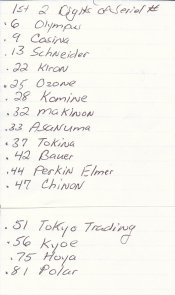 1st 2 Digits of Serial #
.6 Olympus
.9 Cosina
.13 Schneider
.22 Kiron
.25 Ozone
.28 Komine
.32 Makinon
.33 Asanuma
.37 Tokina
.42 Bauer
.44 Perkin Elmer
.47 Chinon
.51 Tokyo Trading
.56 Kyoe
.75 Hoya
.81 Polar